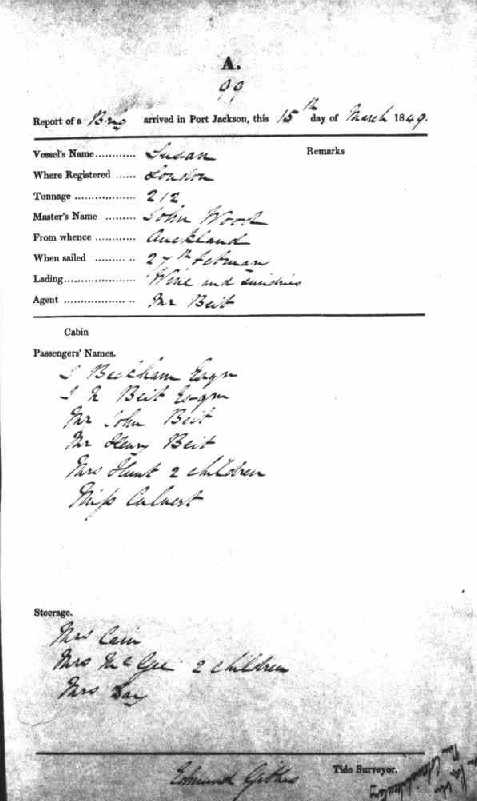 A.
99
Report of a Brig arrived in Port Jackson, this 15th day of March 1849.
Vessel's Name ............ Susan
Remarks
Where Registered ...... London
Tonnage .................. 212
Master's Name ......... John Wood
From whence ............ Auckland
When sailed .......... .. 27th
Lading...................... Wine and Sundries
Agent ................... .. Mr Beit
Cabin
Passengers' Names.
Beckham Esqr
Beit Esqr
Mr John Beit
Mr Henry Beit
Mrs Hunt 2 children
Miss Calvert
Steerage.
Mrs Cain
Mrs McGee 2 children
Mrs Day
Tide Surveyor.
Edmund